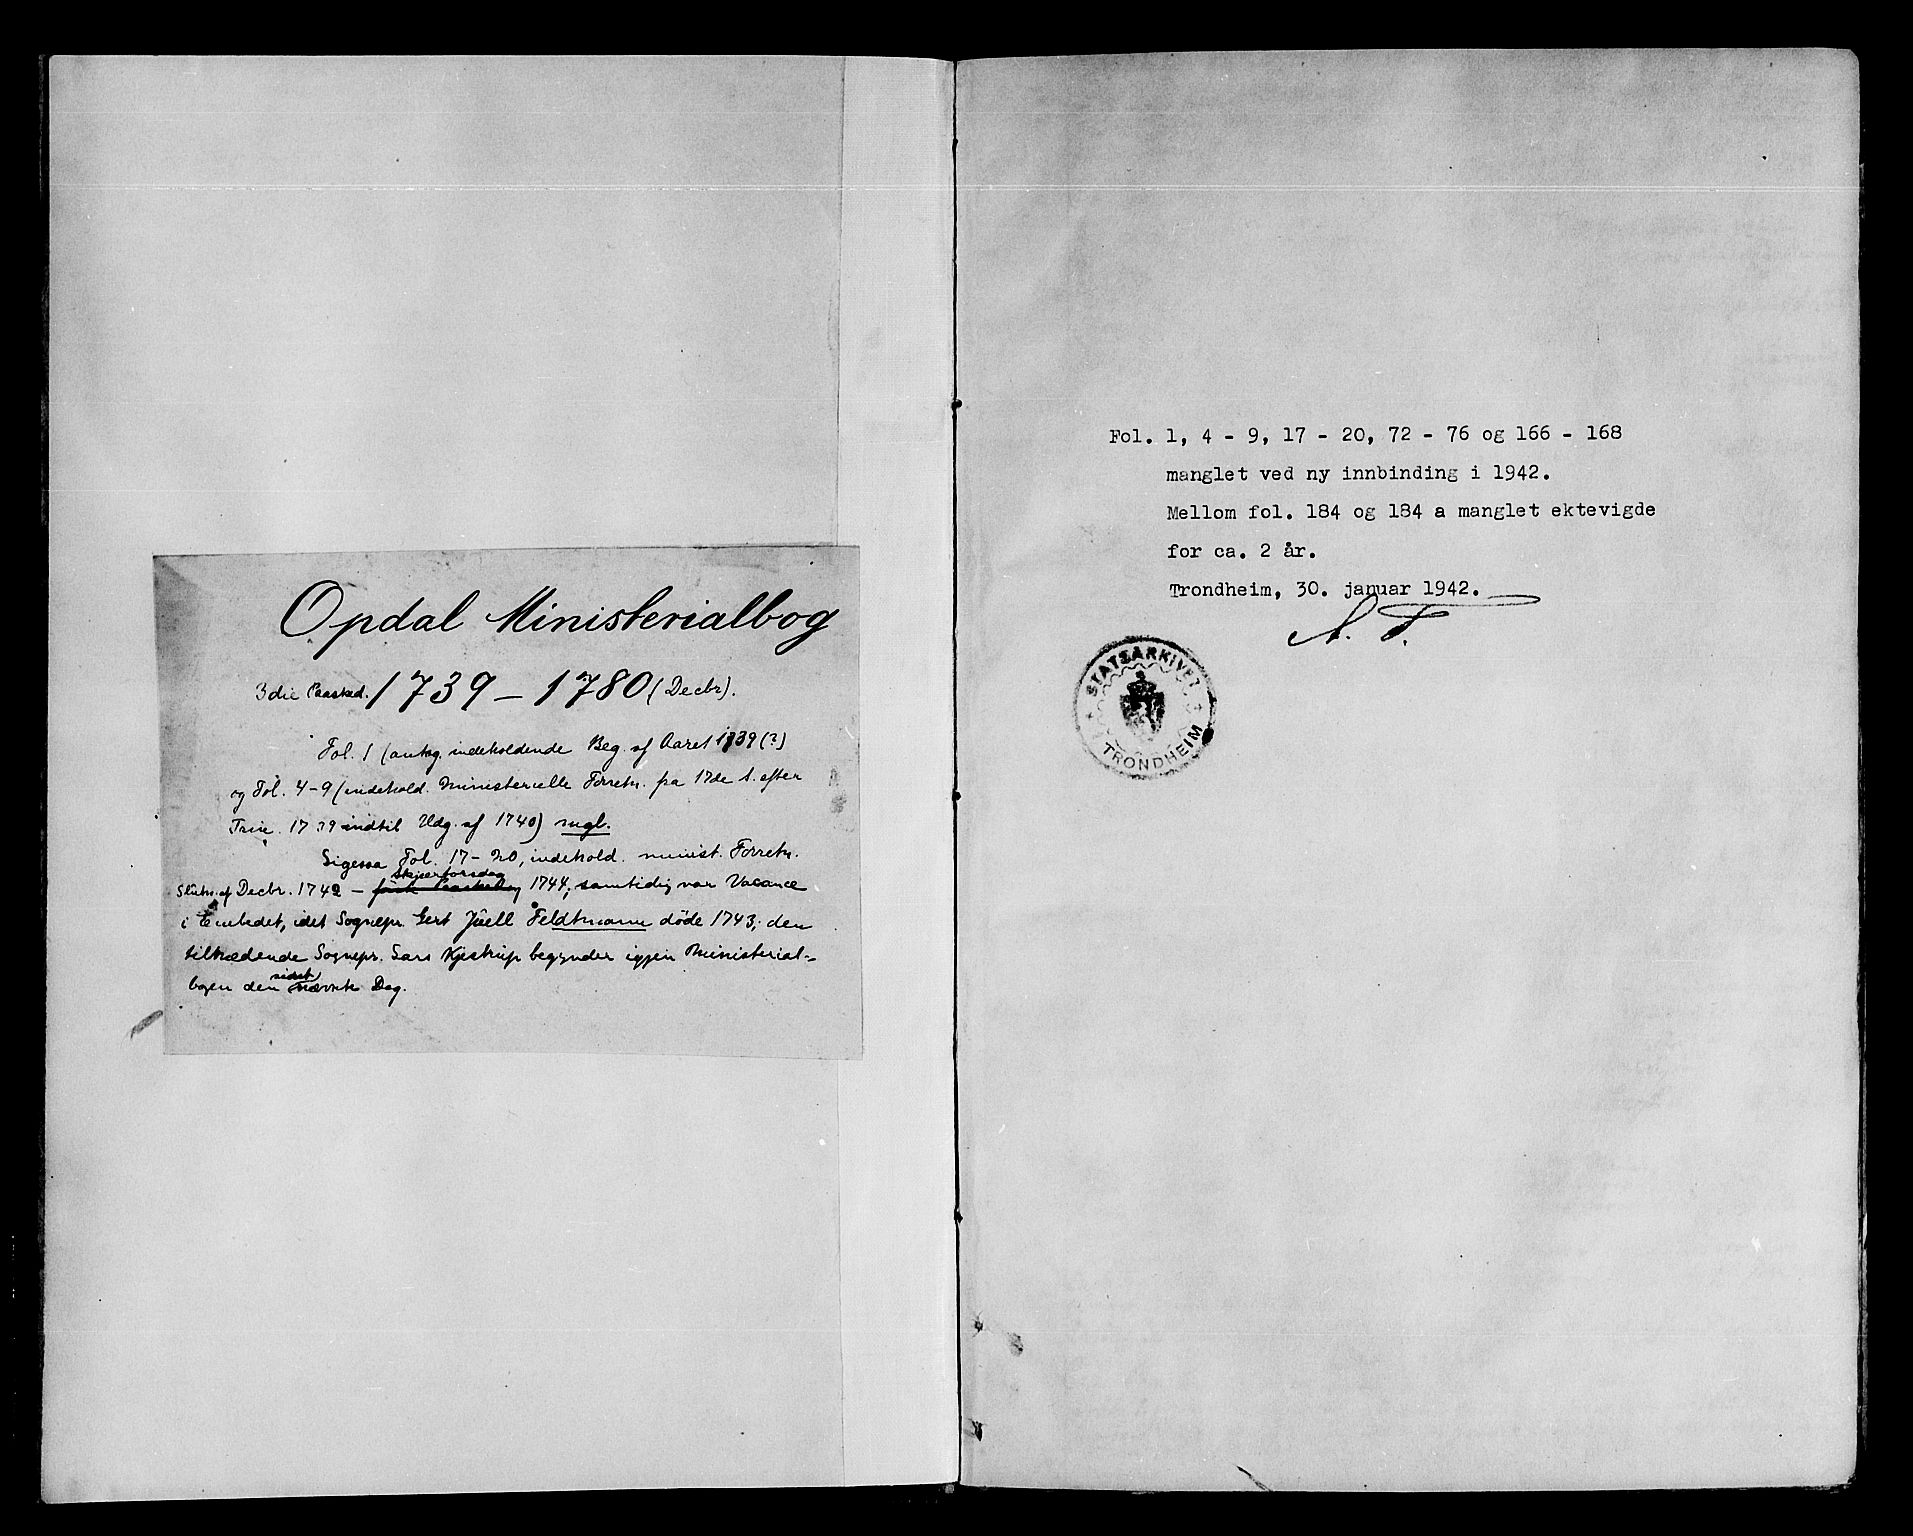 Opdal Ministerialbog
3die Paasked. 1739 – 1780 (Decbr).
Fol. 1 (antag. indeholdende Beg. af Aaret 1739 (?)
og Fol. 4-9 (indehold. Ministerielle Forretn. fra 17de S. efter
Trin. 1739 indtil Udg. af 1740) mgl.
Ligesaa Fol. 17-20, indehold. minist. Forretn.
Skjærtorsdag
Slutn. af Decbr. 1742 – 1744; samtidig var Vacance
i Embedet, idet Sognepr. Gert Juell Feldtmann døde 1743; den
tiltrædende Sognepr. Lars Kjestrup begynder igjen Ministerial-
sidst
bogen den nævnte Dag.
Fol. 1, 4 - 9, 17 - 20, 72 - 76 og 166 - 168
manglet ved ny innbinding i 1942.
Mellom fol. 184 og 184 a manglet ektevigde
for ca. 2 år.
Trondheim, 30. januar 1942.
A. T.
STATSARKIVET I
TRONDHEIM